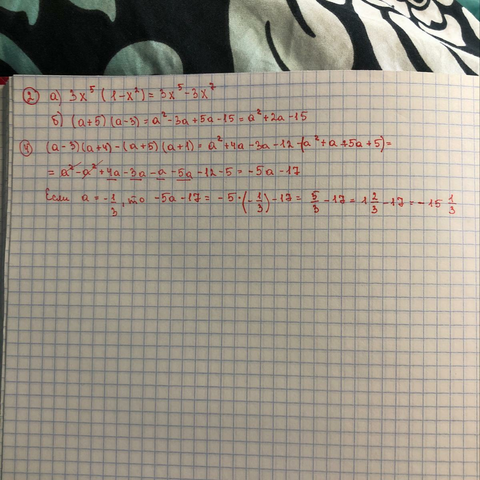 ② а) 3x⁵ (1-x²) = 3x⁵-3x⁷
б) (a+5)(a-3) = a²-3a+5a-15 = a²+2a-15
④ (a-3)(a+4)-(a+5)(a+1) = a²+4a-3a-12-(a²+a+5a+5)=
= a²-a²+4a-3a-a-5a-12-5 = -5a-17
Если a = -1/3, то -5a-17 = -5·(-1/3)-17 = 5/3-17 = 1 2/3-17 = -15 1/3